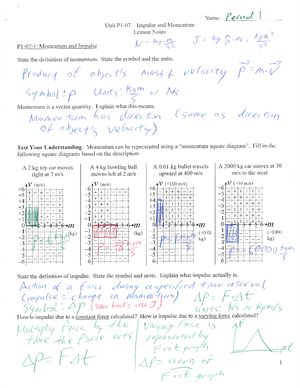 Name: Period 1
Unit P1-07 Impulse and Momentum
Lesson Notes
N = kg·m/s² J = kg·m/s²·m = kg m²/s²
P1-07-1: Momentum and Impulse
State the definition of momentum. State the symbol and the units.
Product of object's mass & velocity p = m·v
Symbol: p Units: kg m/s or Ns
Momentum is a vector quantity. Explain what this means.
Momentum has direction (same as direction
of object's velocity)
Test Your Understanding: Momentum can be represented using a "momentum square diagram". Fill in the
following square diagrams based on the description
A 2 kg toy car moves
right at 3 m/s
A 4 kg bowling ball
moves left at 2 m/s
A 0.01 kg bullet travels
upward at 400 m/s
A 2000 kg car moves at 30
m/s to the west
State the definition of impulse. State the symbol and units. Explain what impulse actually is.
Action of a force during a specified time interval
(impulse = change in momentum) Δp = F·Δt
Symbol: Δp Units: Ns or kg m/s
How is impulse due to a constant force calculated? How is impulse due to a varying force calculated?
Multiply force by the
time the force acts
Δp = FΔt
Varying force is
represented by
F vs t graph
Δp = area of
F vs t graph
1